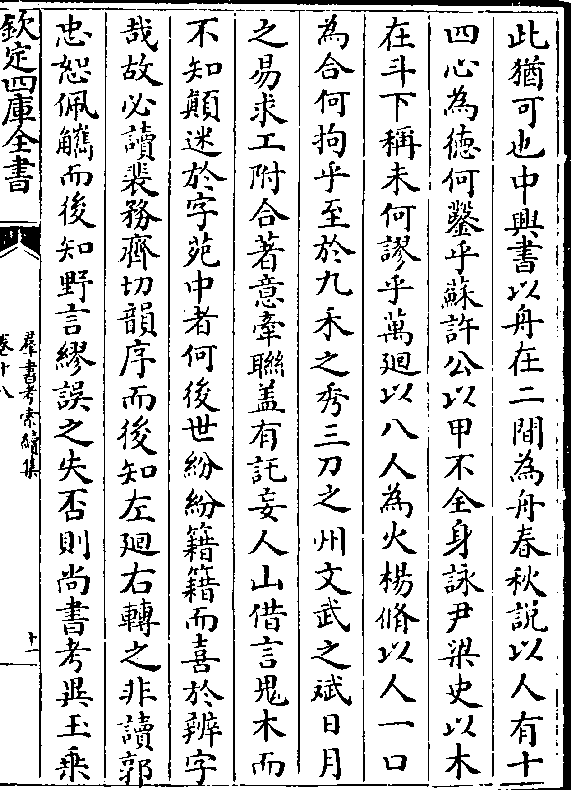 此猶可也中興書以舟在二間為舟春秋說以人有十
四心為徳何鑿乎蘇許公以甲不全身詠尹梁史以木
在斗下稱未何謬乎萬廻以八人為火楊脩以人一口
為合何拘乎至於九禾之秀三刀之州文武之斌日月
之易求工附合著意牽聯盖有託妄人山借言鬼木而
不知顛迷於字苑中者何後世紛紛籍籍而喜於辨字
哉故必讀裴務齊切韻序而後知左廻右轉之非讀郭
忠恕佩觿而後知野言繆誤之失否則尚書考異玉乗
欽定四庫全書
羣書考索續集
卷十八
十一